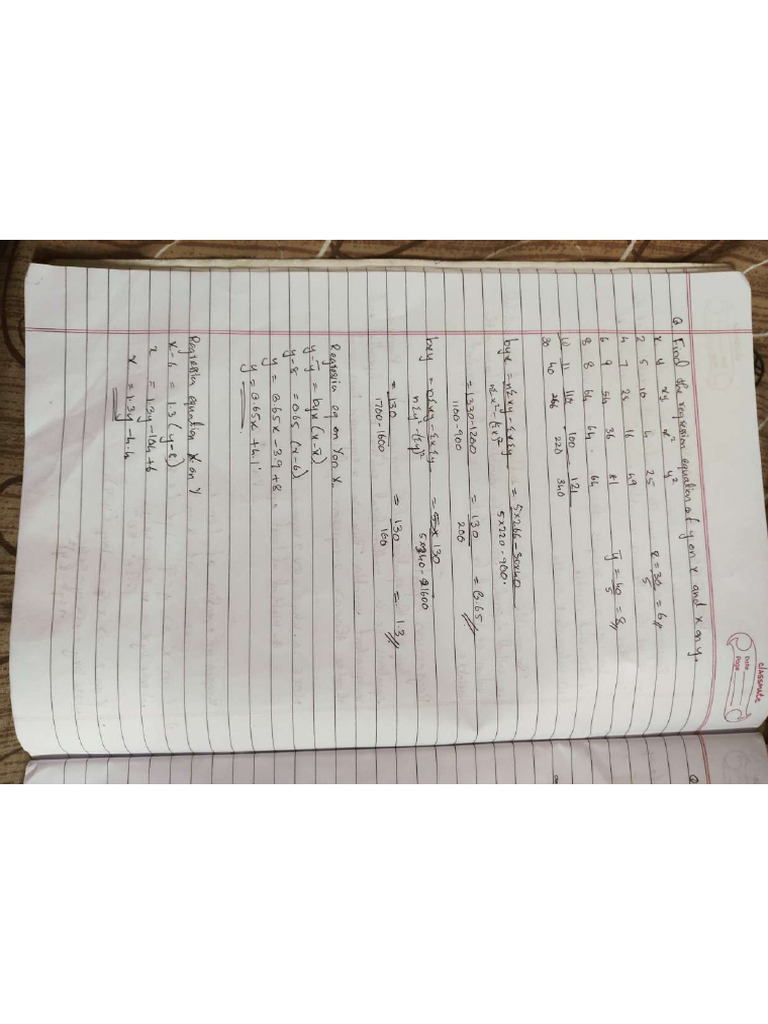 classmate
Date
Page
Q. Find the regression equation of y on x and x on y.
x y xy x² y²
2 5 10 4 25 x̄ = 30/5 = 6
4 7 28 16 49
6 9 54 36 81 ȳ = 40/5 = 8
8 8 64 64 64
10 11 110 100 121
30 40 266 220 340
byx = nΣxy - ΣxΣy / nΣx² - (Σx)² = 5x266 - 30x40 / 5x220 - 900
= 1330-1200 / 1100-900 = 130 / 200 = 0.65
bxy = nΣxy - ΣxΣy / nΣy² - (Σy)² = 130 / 5x340 - 1600
= 130 / 1700-1600 = 130 / 100 = 1.3
Regression eq on Y on X.
y-ȳ = byx (x-x̄)
y-8 = 0.65 (x-6)
y = 0.65x - 3.9 + 8
y = 0.65x + 4.1
Regression equation X on Y
x-6 = 1.3 (y-8)
x = 1.3y - 10.4 + 6
x = 1.3y - 4.4